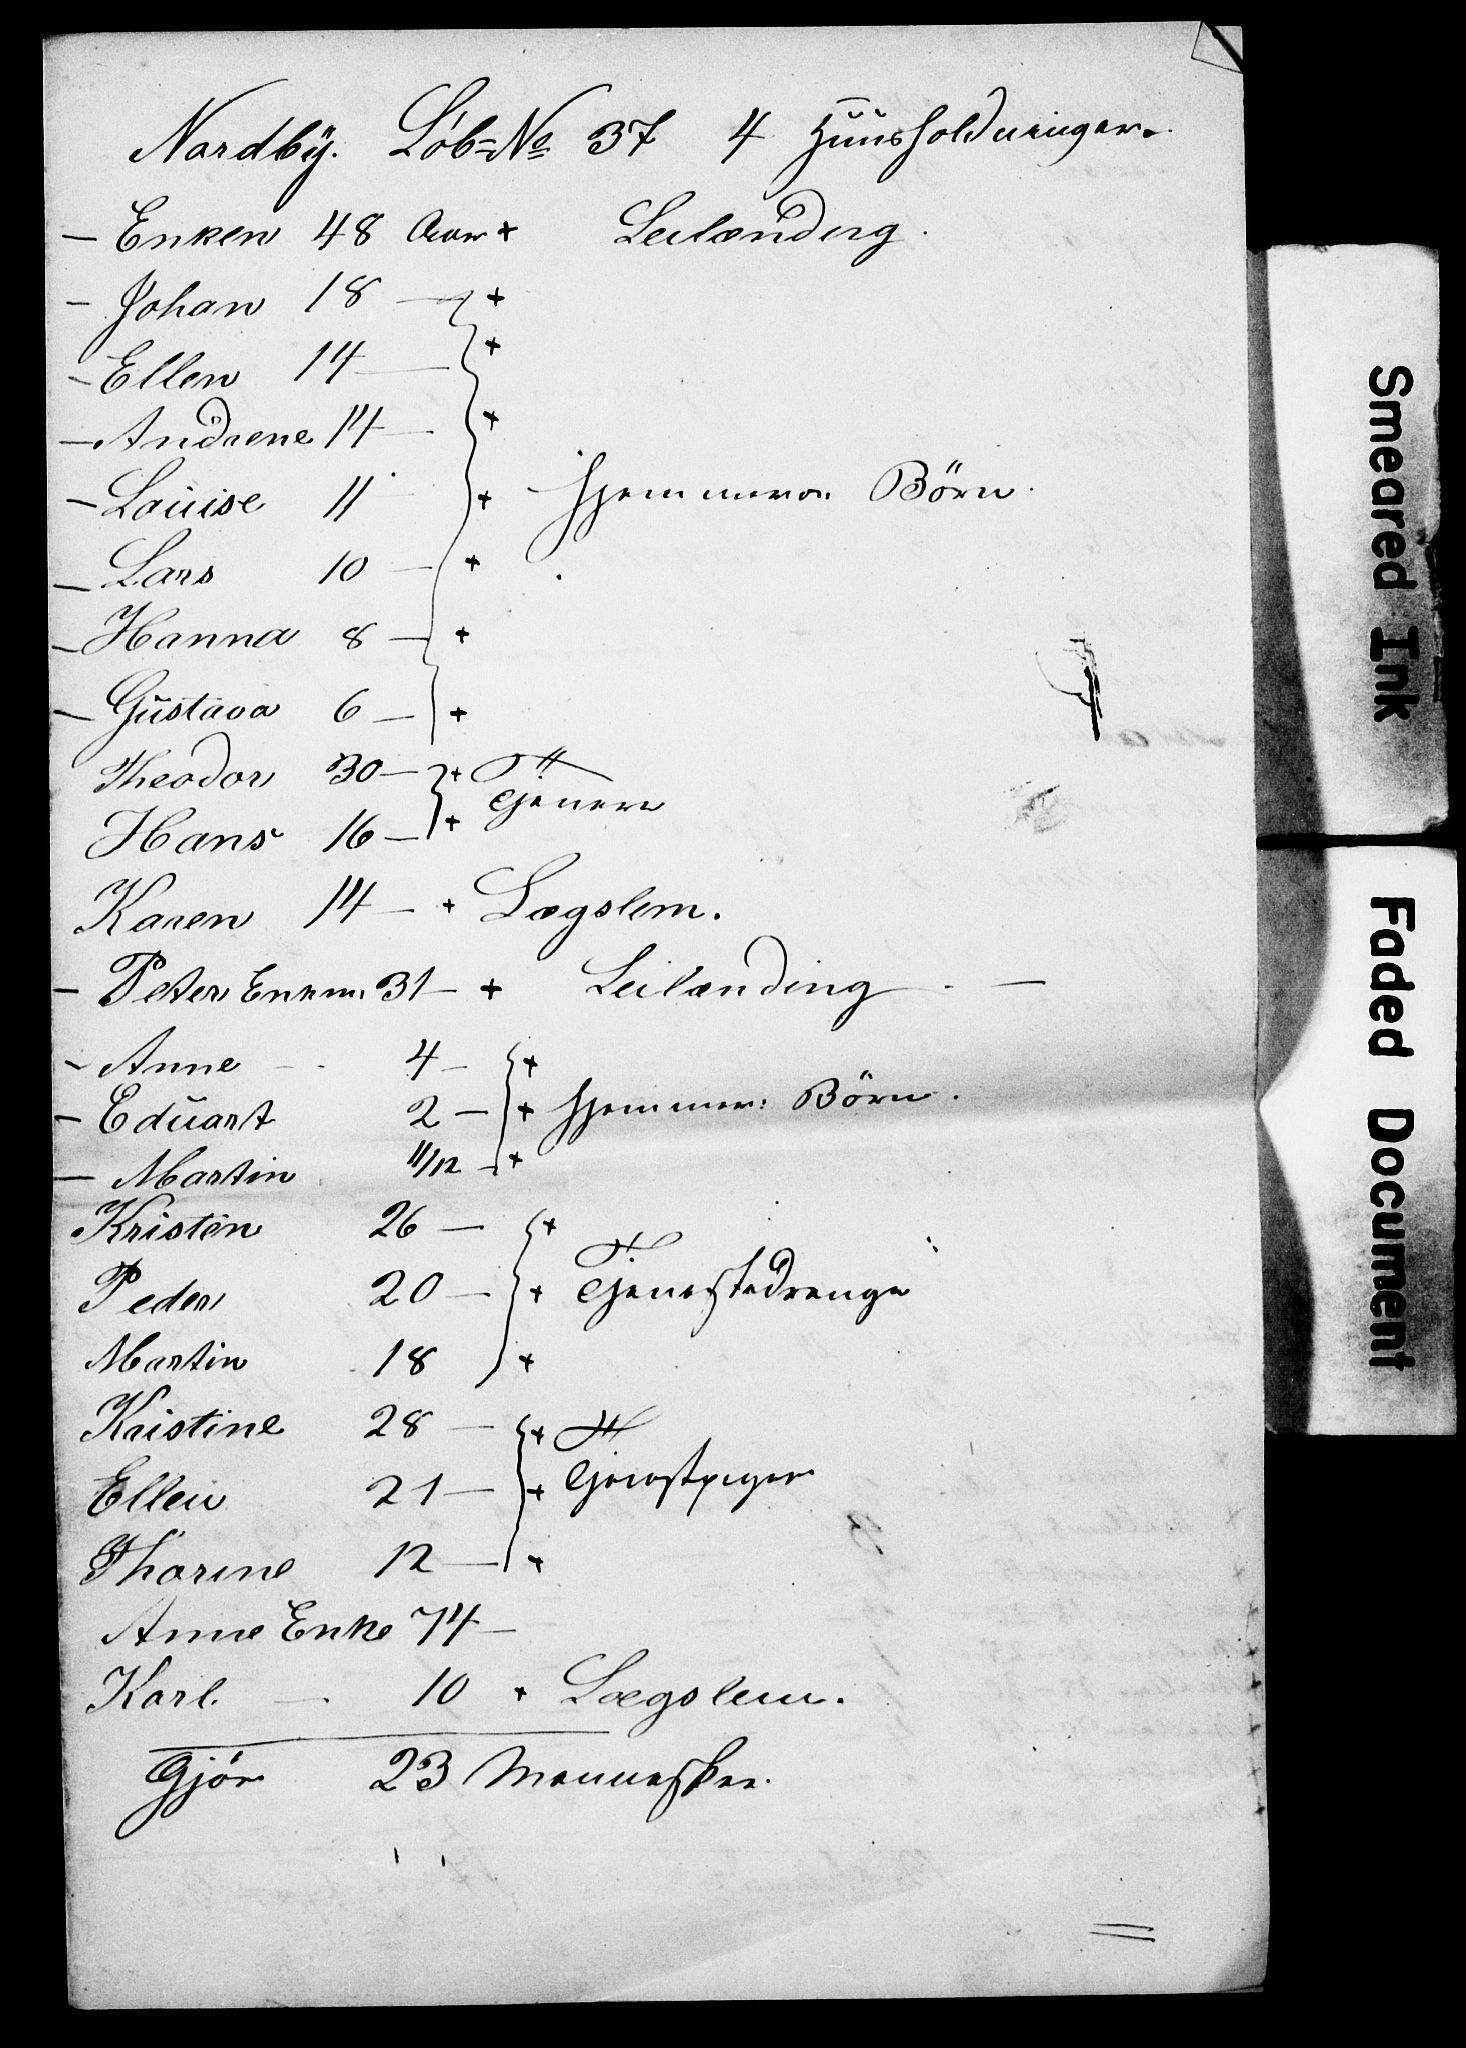 Nordby. Løb=No 37 4 Huusholdninger.
— Enken 48 Aar + Leilænding.
— Johan 18 — +
— Ellen 14 — +
— Andrene 14 — +
— Louise 11 — + hjemmevær. Börn.
— Lars 10 — +
— Hanna 8 — +
— Gustava 6 — +
Theodor 30 — +
Tjenere
Hans 16 — +
Karen 14 — + Lægslem.
— Peter Enkm. 31 — + Leilænding. —
— Anne 4 — +
— Eduart 2 — + hjemmev: Börn.
— Martin 11/12 — +
Kristen 26 — +
Peder 20 — + Tjenestedrenge
Martin 18 +
Kristine 28 — +
Ellen 21 — + Tjenestpiger
Thorine 12 — +
Anne Enke 74 —
Karl. — 10 + Lægslem.
Gjör 23 Mennesker.
Smeared Ink
Faded Document